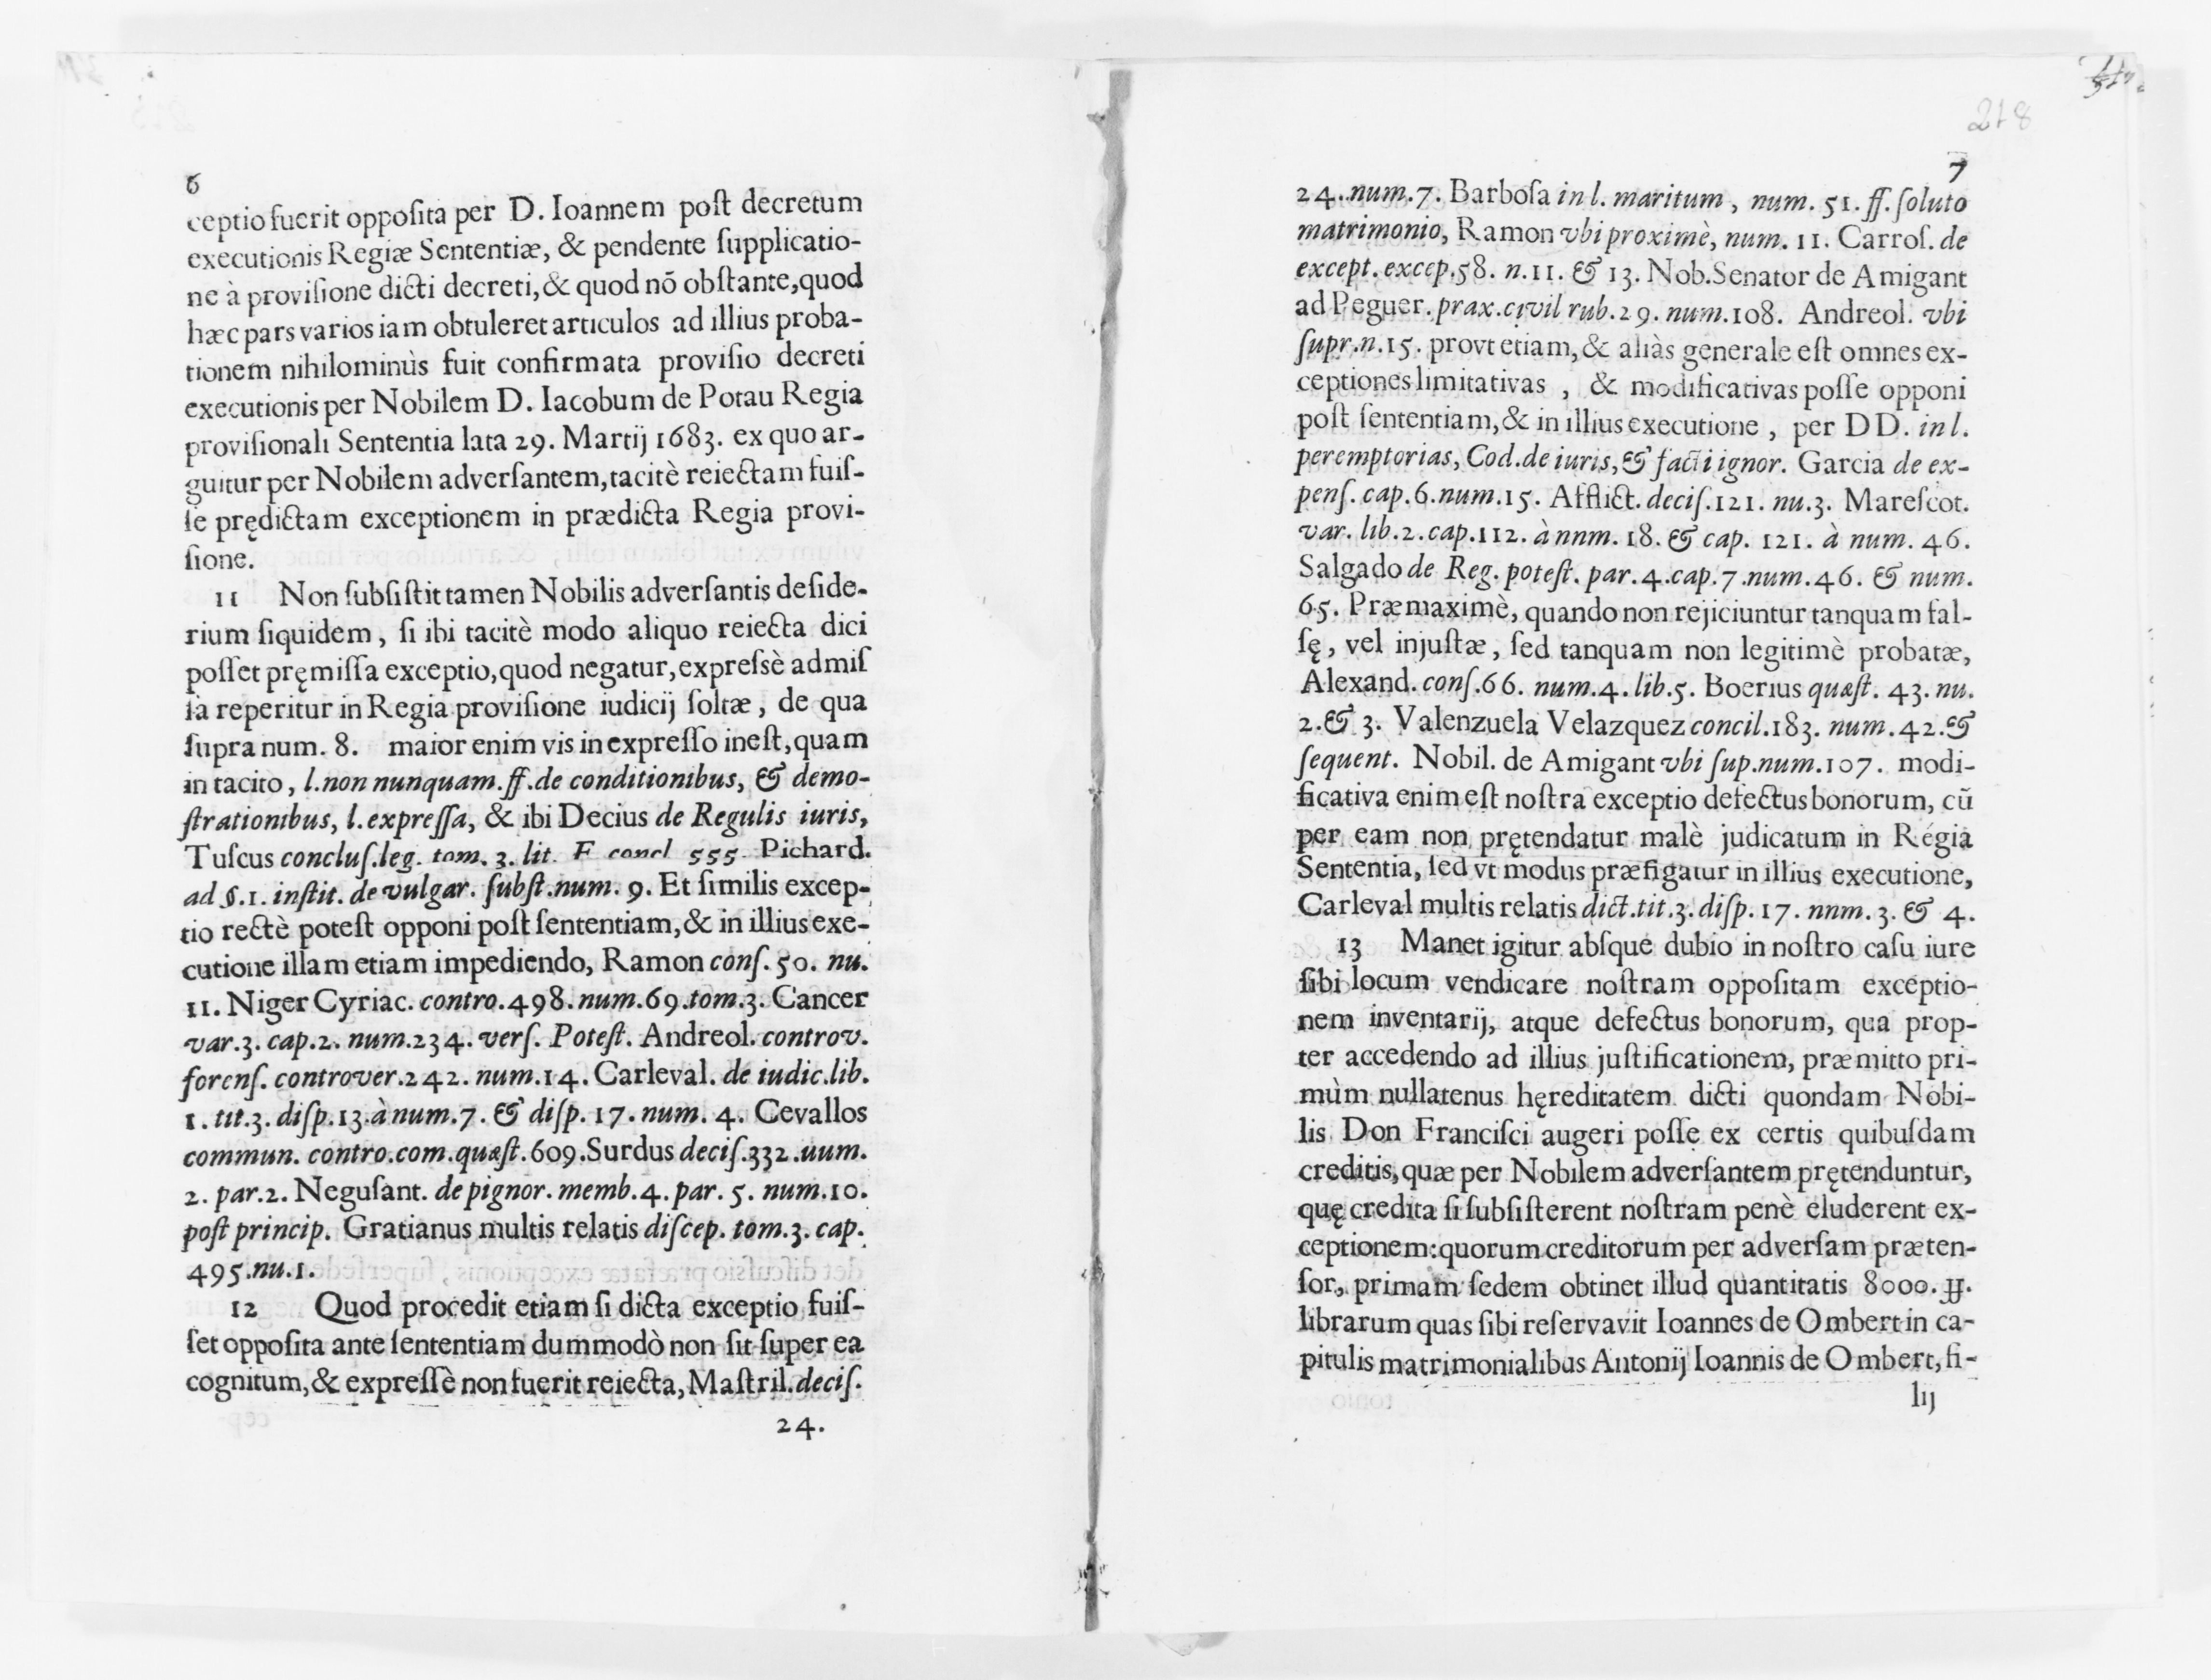 6
ceptio fuerit opposita per D. Ioannem post decretum
executionis Regiæ Sententiæ, & pendente supplicatio-
ne à provisione dicti decreti, & quod nō obstante, quod
hæc pars varios iam obtuleret articulos ad illius proba-
tionem nihilominùs fuit confirmata provisio decreti
executionis per Nobilem D. Iacobum de Potau Regia
provisionali Sententia lata 29. Martij 1683. ex quo ar-
guitur per Nobilem adversantem, tacitè reiectam fuis-
se prędictam exceptionem in prædicta Regia provi-
sione.
11 Non subsistit tamen Nobilis adversantis deside-
rium siquidem, si ibi tacitè modo aliquo reiecta dici
posset pręmissa exceptio, quod negatur, expressè admis
sa reperitur in Regia provisione iudicij soltæ, de qua
supra num. 8. maior enim vis in expresso inest, quam
in tacito, l. non nunquam. ff. de conditionibus, & demo-
strationibus, l. expressa, & ibi Decius de Regulis iuris,
Tuscus conclus. leg. tom. 3. lit. E concl 555. Pichard.
ad §. 1. instit. de vulgar. subst. num. 9. Et similis excep-
tio rectè potest opponi post sententiam, & in illius exe-
cutione illam etiam impediendo, Ramon cons. 50. nu.
11. Niger Cyriac. contro. 498. num. 69. tom. 3. Cancer
var. 3. cap. 2. num. 234. vers. Potest. Andreol. controv.
forens. controver. 242. num. 14. Carleval. de iudic. lib.
1. tit. 3. disp. 13. à num. 7. & disp. 17. num. 4. Cevallos
commun. contro. com. quæst. 609. Surdus decis. 332. uum.
2. par. 2. Negusant. de pignor. memb. 4. par. 5. num. 10.
post princip. Gratianus multis relatis discep. tom. 3. cap.
495. nu. 1.
12 Quod procedit etiam si dicta exceptio fuis-
set opposita ante sententiam dummodò non sit super ea
cognitum, & expressè non fuerit reiecta, Mastril. decis.
24.
218
7
24. num. 7. Barbosa in l. maritum, num. 51. ff. soluto
matrimonio, Ramon vbi proximè, num. 11. Carros. de
except. excep. 58. n. 11. & 13. Nob. Senator de Amigant
ad Peguer. prax. civil rub. 29. num. 108. Andreol. vbi
supr. n. 15. provt etiam, & aliàs generale est omnes ex-
ceptiones limitativas, & modificativas posse opponi
post sententiam, & in illius executione, per DD. in l.
peremptorias, Cod. de iuris, & facti ignor. Garcia de ex-
pens. cap. 6. num. 15. Afflict. decis. 121. nu. 3. Marescot.
var. lib. 2. cap. 112. à nnm. 18. & cap. 121. à num. 46.
Salgado de Reg. potest. par. 4. cap. 7. num. 46. & num.
65. Præmaximè, quando non rejiciuntur tanquam fal-
sę, vel injustæ, sed tanquam non legitimè probatæ,
Alexand. cons. 66. num. 4. lib. 5. Boerius quæst. 43. nu.
2. & 3. Valenzuela Velazquez concil. 183. num. 42. &
sequent. Nobil. de Amigant vbi sup. num. 107. modi-
ficativa enim est nostra exceptio defectus bonorum, cū
per eam non prętendatur malè judicatum in Regia
Sententia, sed vt modus præfigatur in illius executione,
Carleval multis relatis dict. tit. 3. disp. 17. nnm. 3. & 4.
13 Manet igitur absque dubio in nostro casu iure
sibi locum vendicare nostram oppositam exceptio-
nem inventarij, atque defectus bonorum, qua prop-
ter accedendo ad illius justificationem, præmitto pri-
mùm nullatenus hęreditatem dicti quondam Nobi-
lis Don Francisci augeri posse ex certis quibusdam
creditis, quæ per Nobilem adversantem prętenduntur,
quę credita si subsisterent nostram penè eluderent ex-
ceptionem: quorum creditorum per adversam præten-
sor, primam sedem obtinet illud quantitatis 8000. ꝭꝭ.
librarum quas sibi reservavit Ioannes de Ombert in ca-
pitulis matrimonialibus Antonij Ioannis de Ombert, fi-
lij